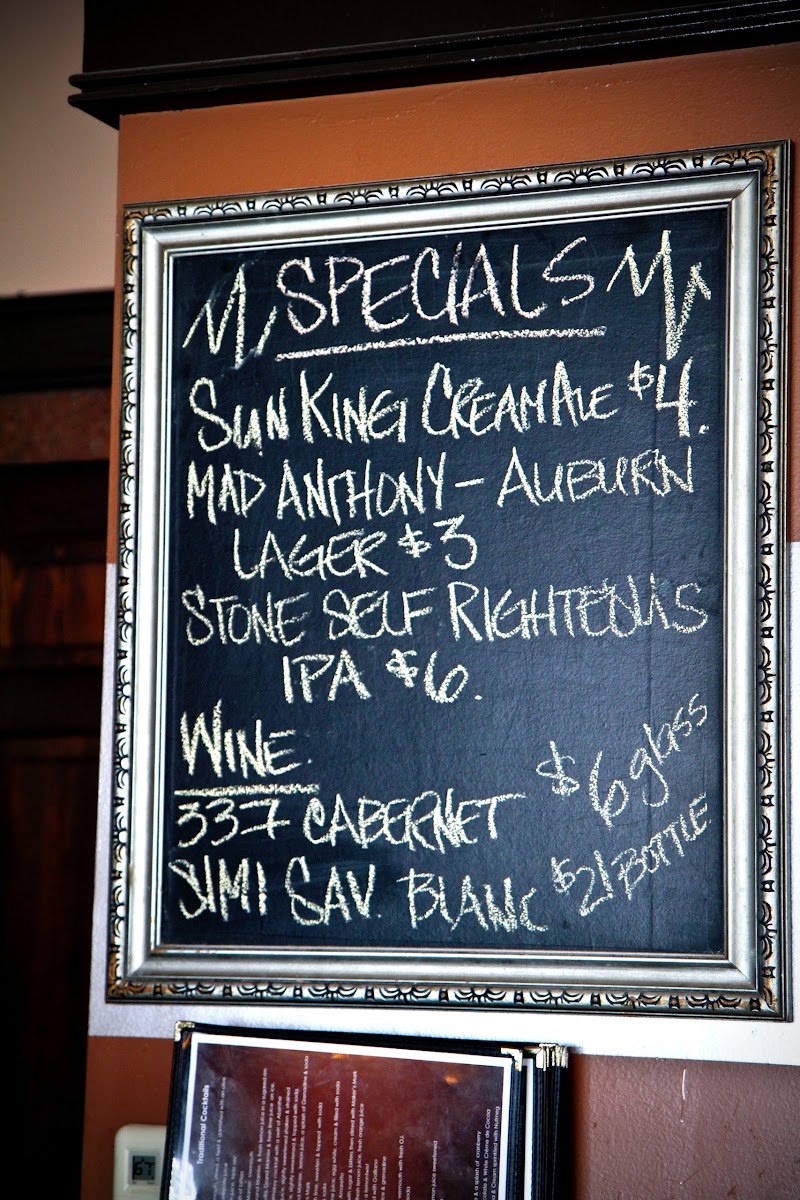 SPECIALS
SUN KING CREAM ALE $4.
MAD ANTHONY - AUBURN
LAGER $3
STONE SELF RIGHTEOUS
IPA $6.
WINE.
337 CABERNET $6 glass
SIMI SAV. BLANC $21 BOTTLE
Traditional Cocktails
67